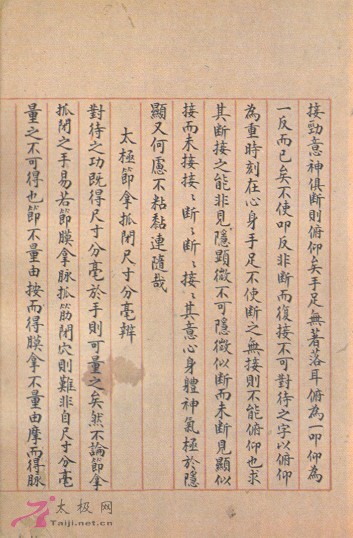 接勁意神俱斷則俯仰矣手足無著落耳俯為一叩仰為
一反而已矣不使叩反非斷而復接不可對待之字以俯仰
為重時刻在心身手足不使斷之無接則不能俯仰也求
其斷接之能非見隱顯微不可隱微似斷而未斷見顯似
接而未接接〻斷〻斷〻接〻其意心身體神氣極於隱
顯又何慮不粘黏連隨哉
太極節拿抓閉尺寸分毫辨
對待之功既得尺寸分毫於手則可量之矣然不論節拿
抓閉之手易若節膜拿脉抓筋閉穴則難非自尺寸分毫
量之不可得也節不量由按而得膜拿不量由摩而得脉
太极网
Taiji.net.cn